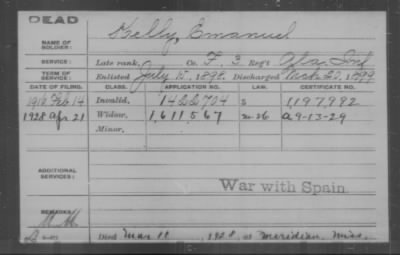 DEAD
NAME OF SOLDIER: Kelly, Emanuel
SERVICE: Late rank, Co. F. 3 Reg't Ala. Inf
TERM OF SERVICE: Enlisted July 15, 1898, Discharged Mch 20, 1899
DATE OF FILING. CLASS. APPLICATION NO. LAW. CERTIFICATE NO.
1912 Feb 14 Invalid, 1422704 S 1,197,992
1928 Apr 21 Widow, 1611567 m-26 A9-13-29
Minor,
ADDITIONAL SERVICES:
War with Spain
REMARKS:
Died Mar 11, 1928, at Meridian, Miss.